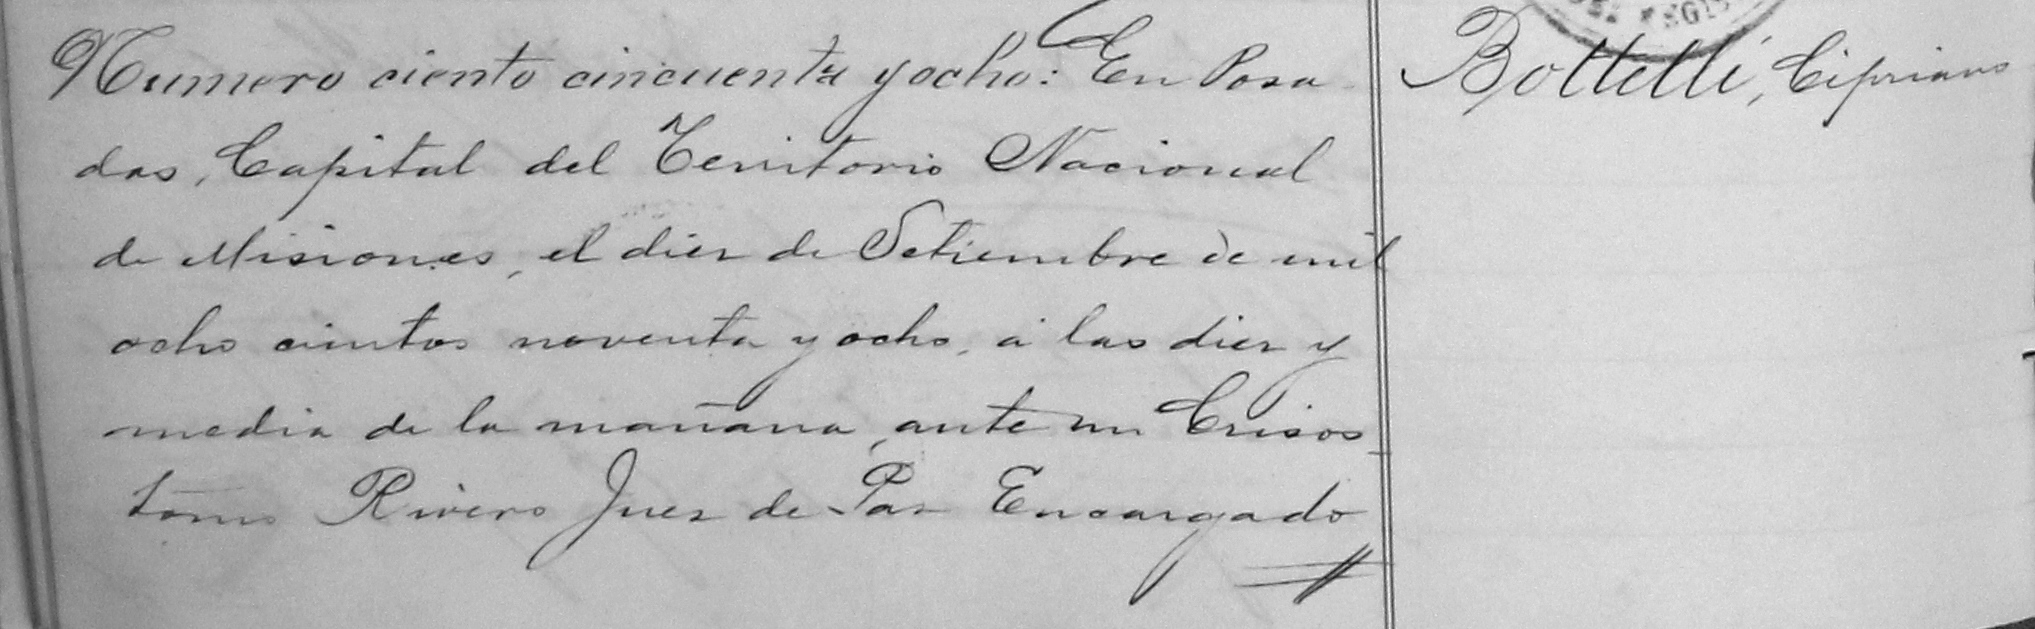 Numero ciento cincuenta y ocho: En Posa
das, Capital del Territorio Nacional
de Misiones, el diez de Setiembre de mil
ocho cientos noventa y ocho, á las diez y
media de la mañana, ante mi Crisos
tomo Rivero Juez de Paz Encargado
Bottelli, Cipriano